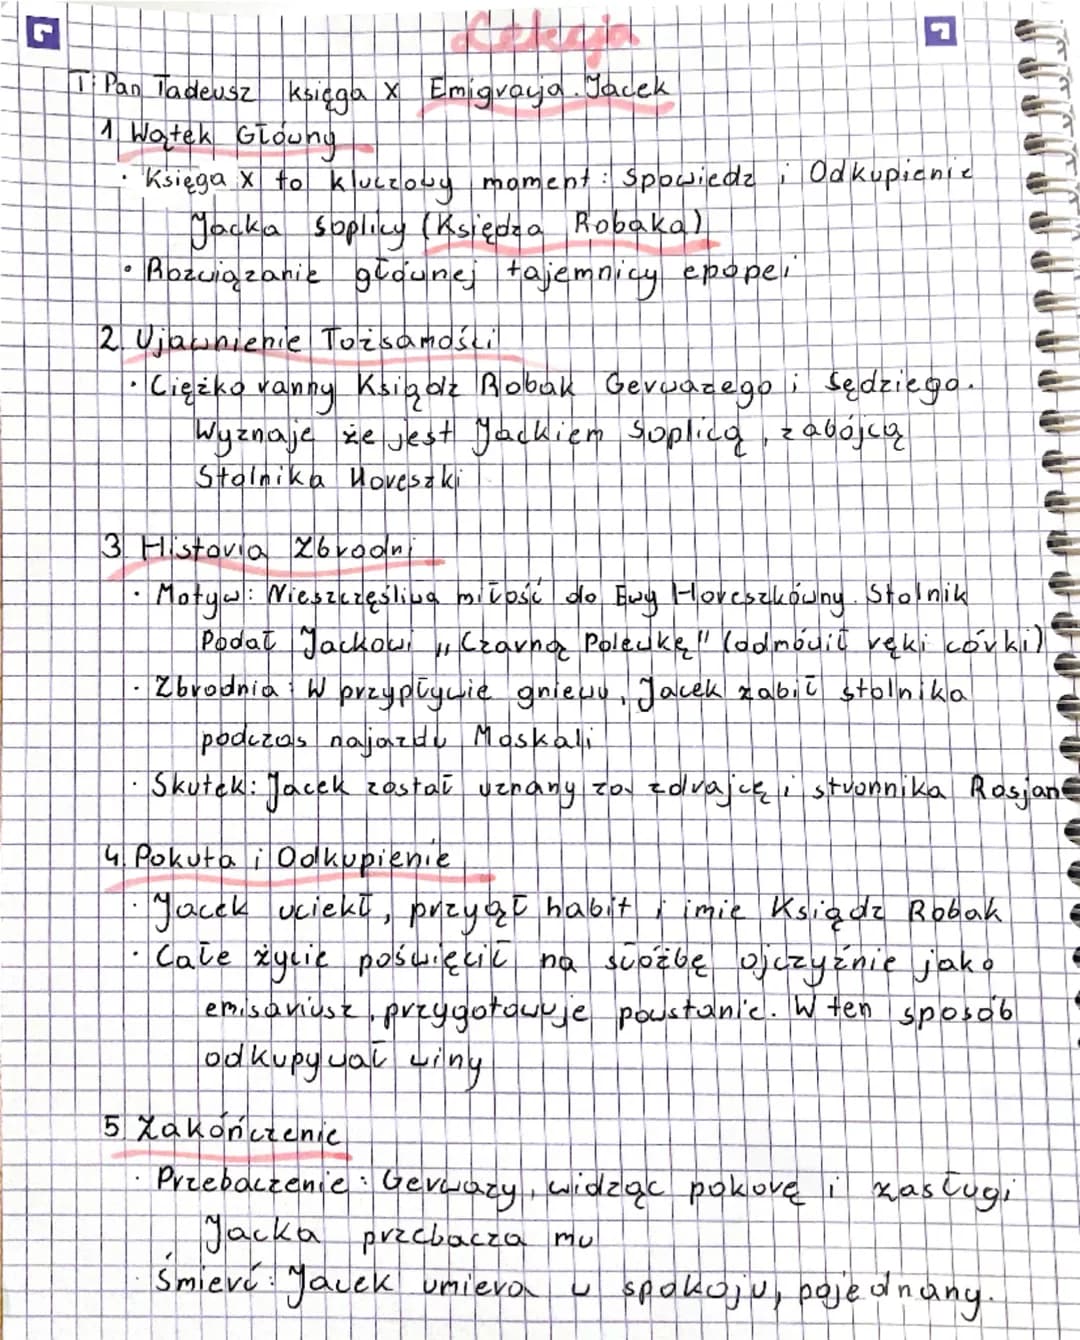 Lekcja
T: Pan Tadeusz księga X Emigracja. Jacek
1 Wątek Główny
· Księga X to kluczowy moment: Spowiedź i Odkupienie
Jacka Soplicy (Księdza Robaka)
· Rozwiązanie głównej tajemnicy epopei
2. Ujawnienie Tożsamości
· Ciężko ranny Ksiądz Robak Gerwazego i Sędziego.
Wyznaje że jest Jackiem Soplicą, zabójcą
Stolnika Horeszki
3. Historia Zbrodni
· Motyw: Nieszczęśliwa miłość do Ewy Horeszkówny. Stolnik
Podał Jackowi „Czarną Polewkę" (odmówił ręki córki)
· Zbrodnia: W przypływie gniewu, Jacek zabił stolnika
podczas najazdu Moskali
· Skutek: Jacek został uznany za zdrajcę i stronnika Rosjan
4. Pokuta i Odkupienie
· Jacek uciekł, przyjął habit i imie Ksiądz Robak
· Całe życie poświęcił na służbę ojczyźnie jako
emisariusz, przygotowuje powstanie. W ten sposób
odkupywał winy
5 Zakończenie
· Przebaczenie: Gerwazy, widząc pokorę i zasługi
Jacka przebacza mu
· Śmierć: Jacek umiera w spokoju, pojednany.